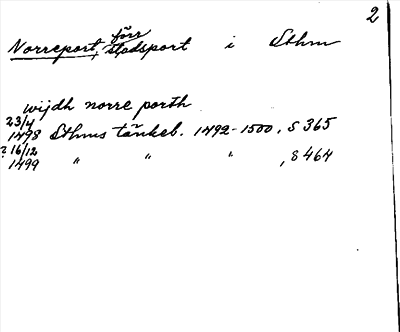 2
Norreport, förr stadsport i Sthm
wijdh norre porth
23/4 1498 Sthms tänkeb. 1492-1500, S 365
? 16/12 1499 " " " , S 464